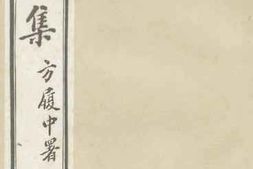 集
方履中署